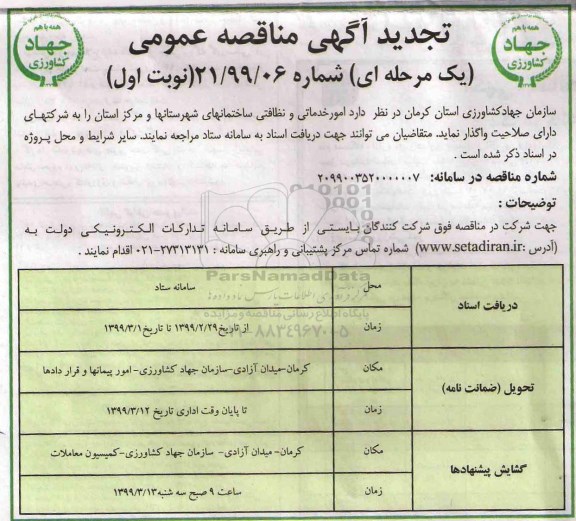 همه با هم
جهاد
کشاورزی
همه با هم
جهاد
کشاورزی
تجدید آگهی مناقصه عمومی
(یک مرحله ای) شماره ۲۱/۹۹/۰۶(نوبت اول)
سازمان جهادکشاورزی استان کرمان در نظر دارد امورخدماتی و نظافتی ساختمانهای شهرستانها و مرکز استان را به شرکتهای
دارای صلاحیت واگذار نماید. متقاضیان می توانند جهت دریافت اسناد به سامانه ستاد مراجعه نمایند. سایر شرایط و محل پروژه
در اسناد ذکر شده است .
شماره مناقصه در سامانه: ۲۰۹۹۰۰۳۵۲۰۰۰۰۰۰۷
توضیحات :
جهت شرکت در مناقصه فوق شرکت کنندگان بایستی از طریق سامانه تدارکات الکترونیکی دولت به
(آدرس :www.setadiran.ir) شماره تماس مرکز پشتیبانی و راهبری سامانه : ۲۷۳۱۳۱۳۱-۰۲۱ اقدام نمایند .
دریافت اسناد
محل
سامانه ستاد
زمان
از تاریخ۱۳۹۹/۲/۲۹ تا تاریخ۱۳۹۹/۳/۱
تحویل (ضمانت نامه)
مکان
کرمان-میدان آزادی-سازمان جهاد کشاورزی- امور پیمانها و قرار دادها
زمان
تا پایان وقت اداری تاریخ ۱۳۹۹/۳/۱۲
گشایش پیشنهادها
مکان
کرمان- میدان آزادی- سازمان جهاد کشاورزی-کمیسیون معاملات
زمان
ساعت ۹ صبح سه شنبه۱۳۹۹/۳/۱۳
ParsNamadData
پایگاه اطلاع رسانی مناقصه و مزایده
۰۲۱-۸۸۳۴۹۶۷۰-۵